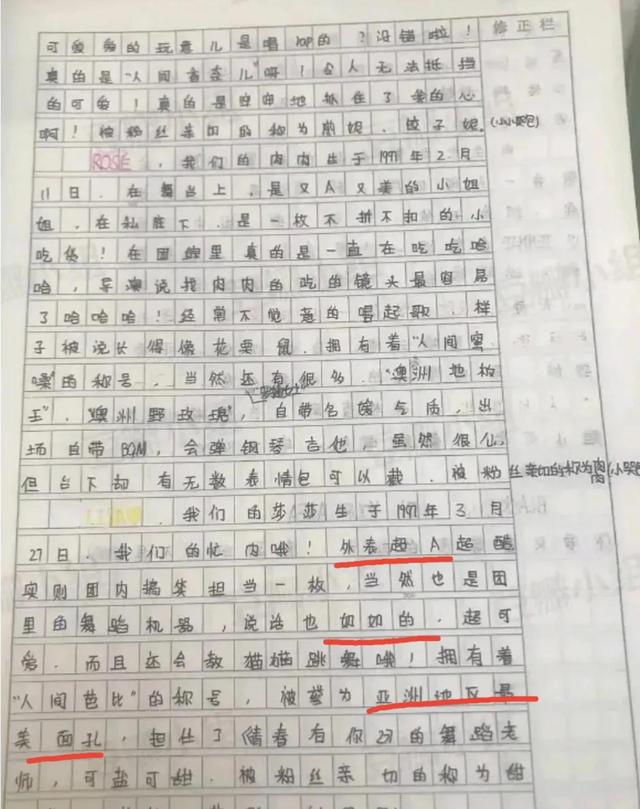 修正栏
可爱爱的玩意儿是唱rap的?没错啦!
真的是"人间 儿"呀!令人无法抵挡
的可爱!真的是牢牢地抓住了我的心
啊!被粉丝亲切的称为 妮、饺子妮。(小哭包)
ROSÉ,我们的肉肉生于1997年2月
11日,在舞台上,是又A又美的小姐
姐,在私底下,是一枚不折不扣的小
吃货!在团综里真的是一直在吃吃哈
哈,导演说找肉肉的吃的镜头最容易
了哈哈哈!经常不觉意的唱起歌,样
子被说长得像花栗鼠,拥有着"人间蜜
嗓"的称号,当然还有很多,"澳洲地柏
王"、"澳洲野玫瑰",自带名媛气质,出
场自带BGM,会弹钢琴吉他,虽然很仙,
但台下却有无数表情包可以截,被粉丝亲切的称为肉肉(小哭包)
,我们的莎莎生于1997年3月
27日,我们的忙内哦!外表超A超酷
实则团内搞笑担当一枚,当然也是团
里的舞蹈机器,说话也奶奶的,超可
爱,而且还会教猫猫跳舞哦!拥有着
"人间芭比"的称号,被誉为亚洲地区最
美面孔,担任了《青春有你2》的舞蹈老
师,可盐可甜,被粉丝亲切的称为甜